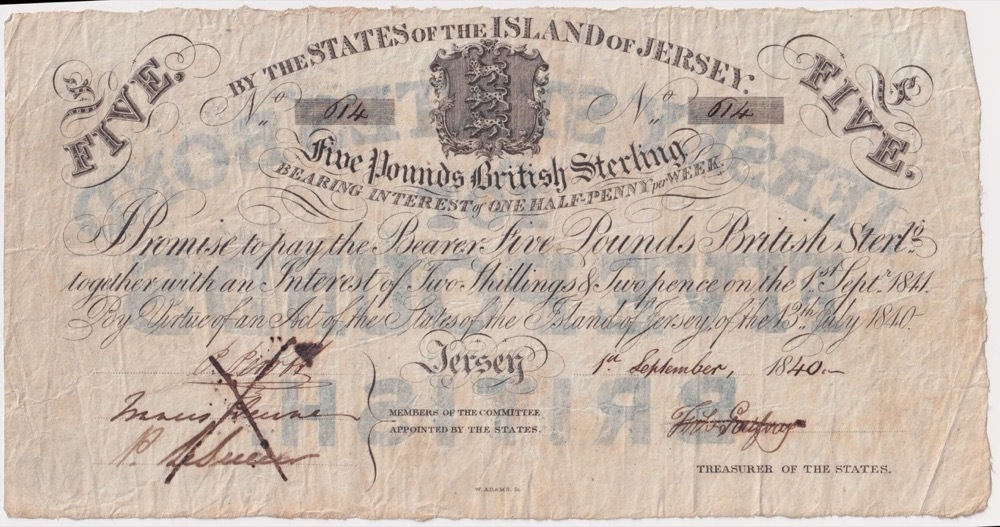 BY THE STATES OF THE ISLAND OF JERSEY.
FIVE. FIVE.
No. 614 No. 614
Five Pounds British Sterling
BEARING INTEREST of ONE HALF-PENNY per WEEK.
I Promise to pay the Bearer Five Pounds British Sterlg.
together with an Interest of Two Shillings & Two pence on the 1st Septr. 1841.
By Virtue of an Act of the States of the Island of Jersey, of the 13th July 1840.
Jersey 1st September, 1840
Francis
MEMBERS OF THE COMMITTEE
APPOINTED BY THE STATES.
P.
TREASURER OF THE STATES.
W. ADAMS. Sc.
JERSEY STATES
FIVE POUNDS
BRITISH